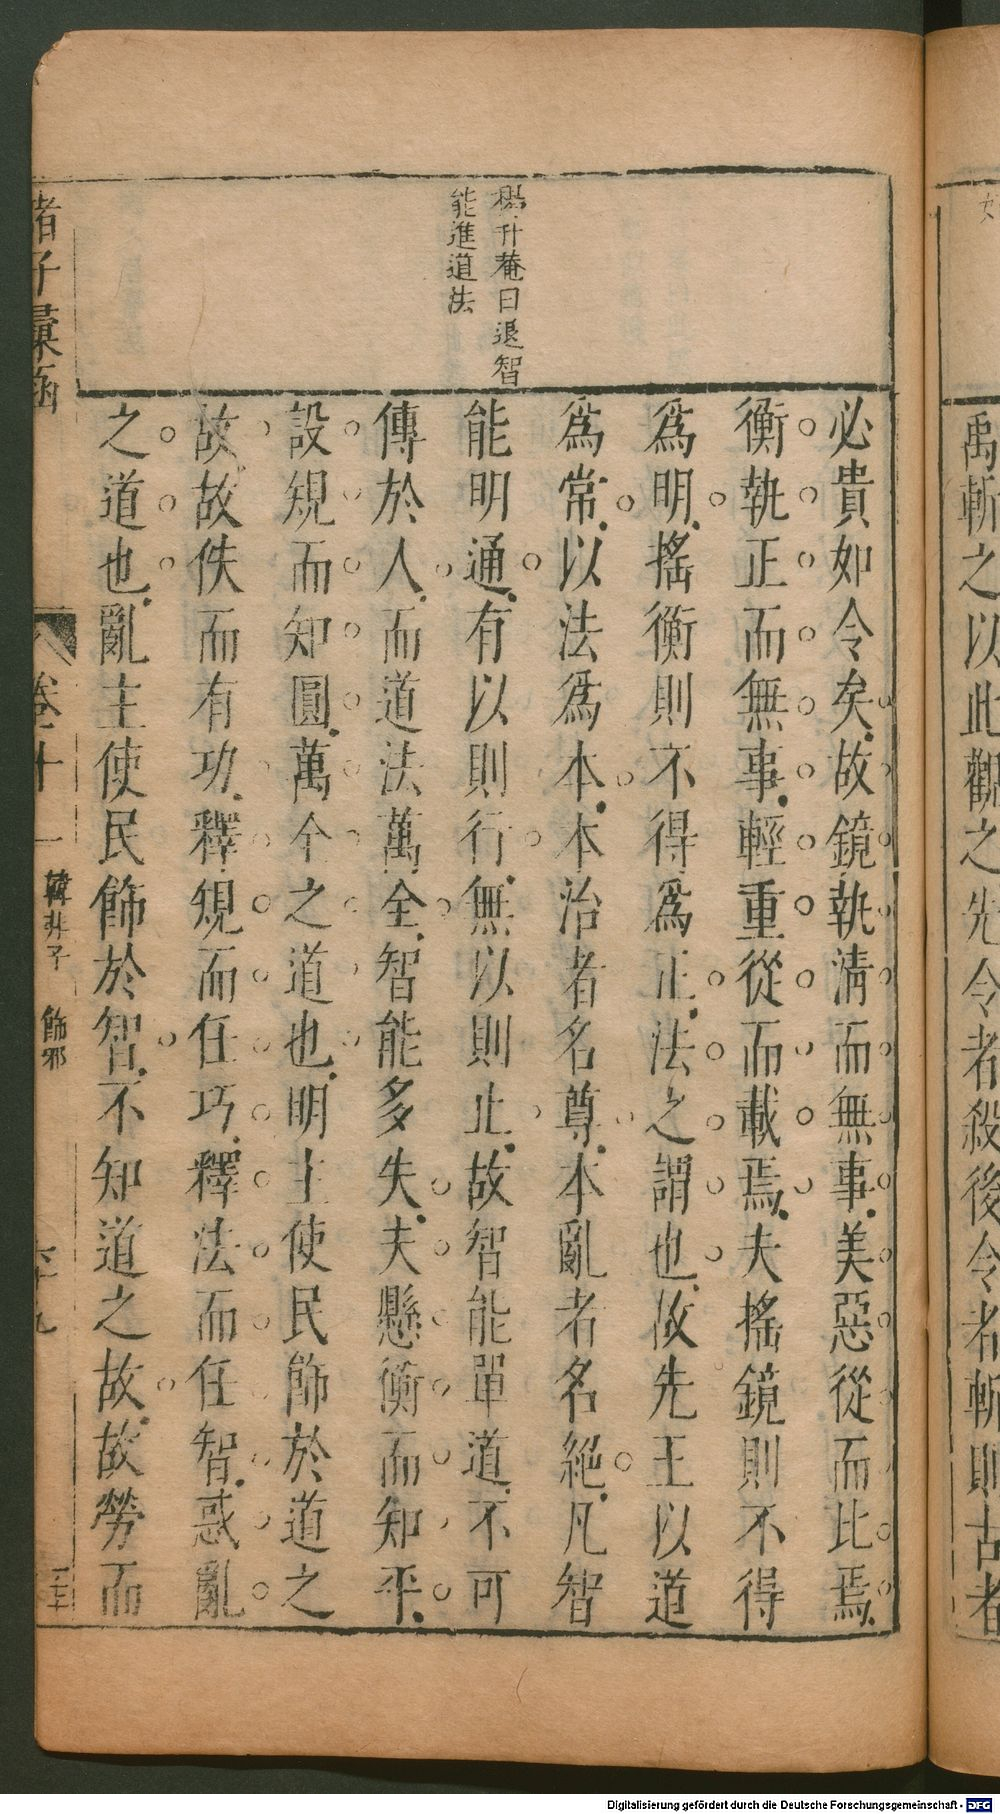 禹斬之以此觀之先令者殺後令者斬則古者
楊升菴曰退智
能進道法
必貴如令矣故鏡執清而無事美惡從而比焉
衡執正而無事輕重從而載焉夫搖鏡則不得
爲明搖衡則不得爲正法之謂也故先王以道
爲常以法爲本本治者名尊本亂者名絕凡智
能明通有以則行無以則止故智能單道不可
傳於人而道法萬全智能多失夫懸衡而知平
設規而知圓萬全之道也明主使民飾於道之
故故佚而有功釋規而任巧釋法而任智惑亂
之道也亂主使民飾於智不知道之故故勞而
諸子彙函
卷十一
韓非子 飾邪
六十九
Digitalisierung gefördert durch die Deutsche Forschungsgemeinschaft - DFG